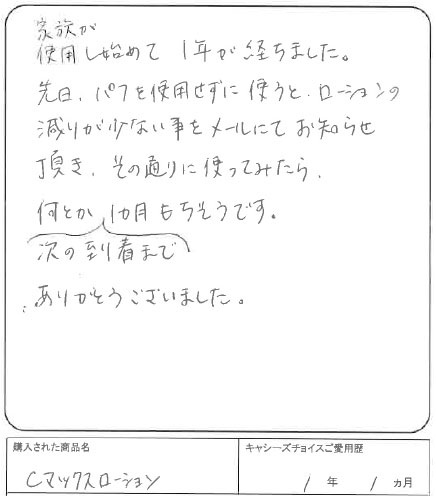 家族が
使用し始めて 1年が経ちました。
先日、パフを使用せずに使うと、ローションの
減りが少ない事をメールにてお知らせ
頂き、その通りに使ってみたら、
何とか、1カ月もちそうです。
次の到着まで
ありがとうございました。
購入された商品名
キャシーズチョイスご愛用歴
Cマックスローション
1 年 1 ヵ月